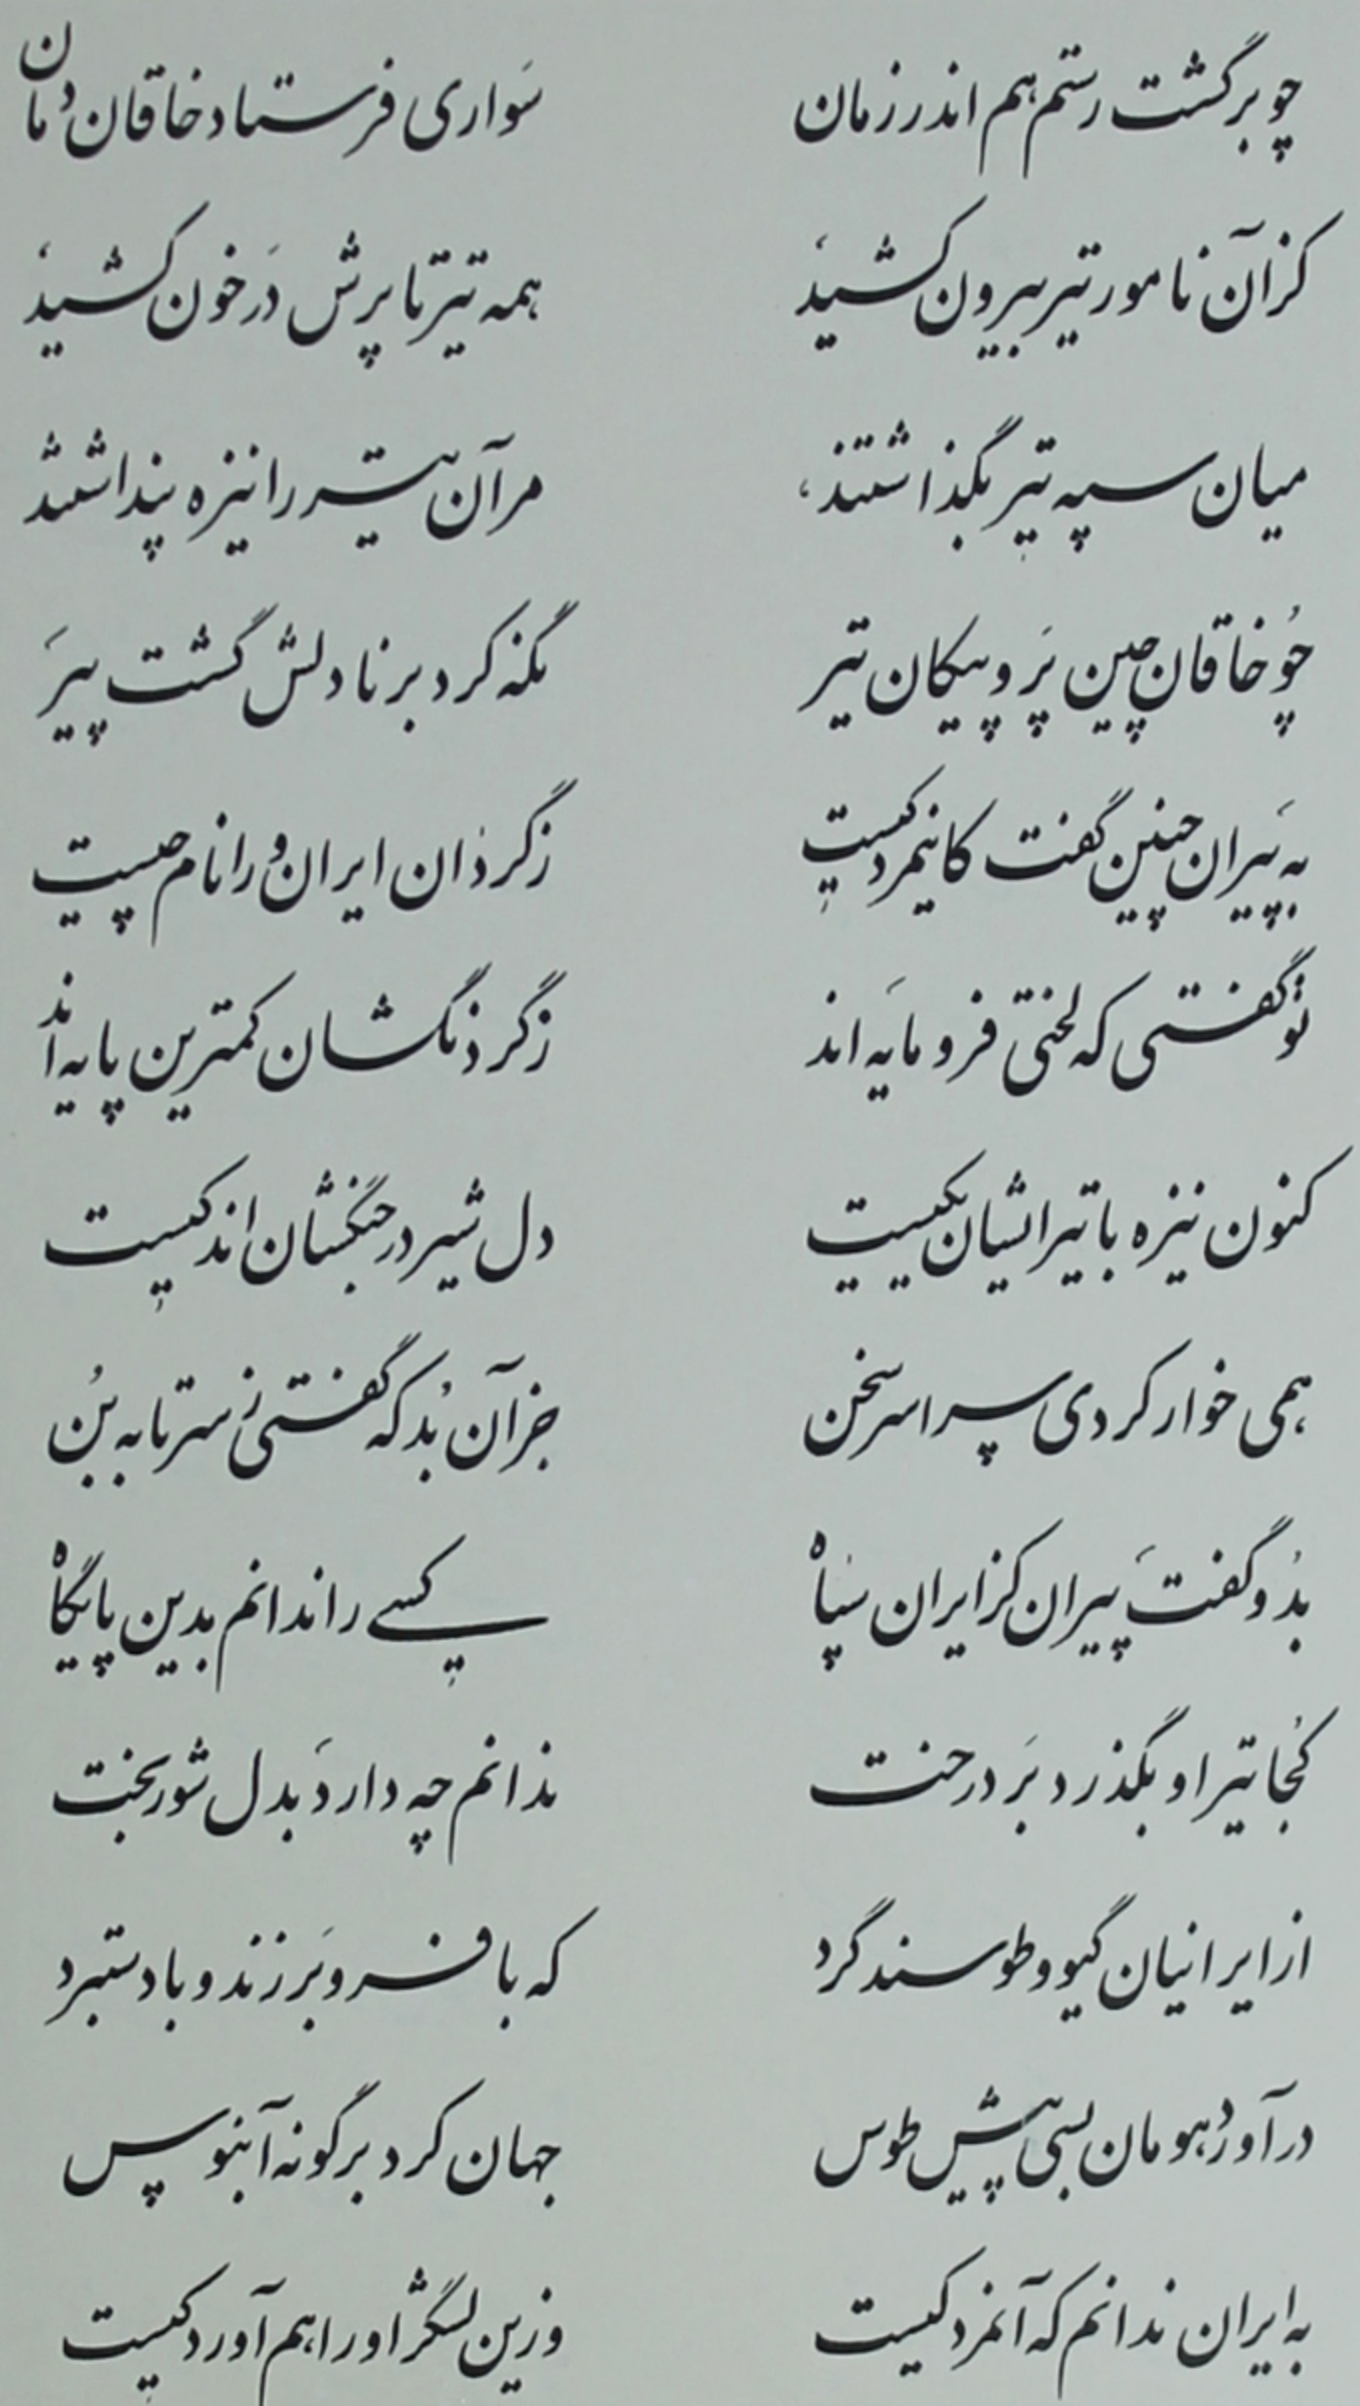 چو برگشت رستم هم اندر زمان سواری فرستاد خاقان دمان
کزآن نامور تیر بیرون کشید همه تیر تا پرش در خون کشید
میان سپه تیر بگذاشتند، مرآن تیر را نیزه پنداشتند
چو خاقان چین پر و پیکان تیر نگه کرد برنا دلش گشت پیر
به پیران چنین گفت کاینمرد کیست ز گردان ایران ورا نام چیست
تو گفتی که لختی فرومایه‌اند ز گردنکشان کمترین پایه‌اند
کنون نیزه با تیر ایشان یکیست دل شیر در جنگشان اندکیست
همی خوار کردی سراسر سخن جز آن بد که گفتی ز سر تا به بن
بدو گفت پیران کز ایران سپاه کسی را ندانم بدین پایگاه
کجا تیر او بگذرد بر درخت ندانم چه دارد بدل شوربخت
از ایرانیان گیو و طوسند گرد که با فر و برزند و با دستبرد
در آورد هومان بسی پیش طوس جهان کرد بر گونه آبنوس
به ایران ندانم که آنمرد کیست وزین لشگر او را هم آورد کیست